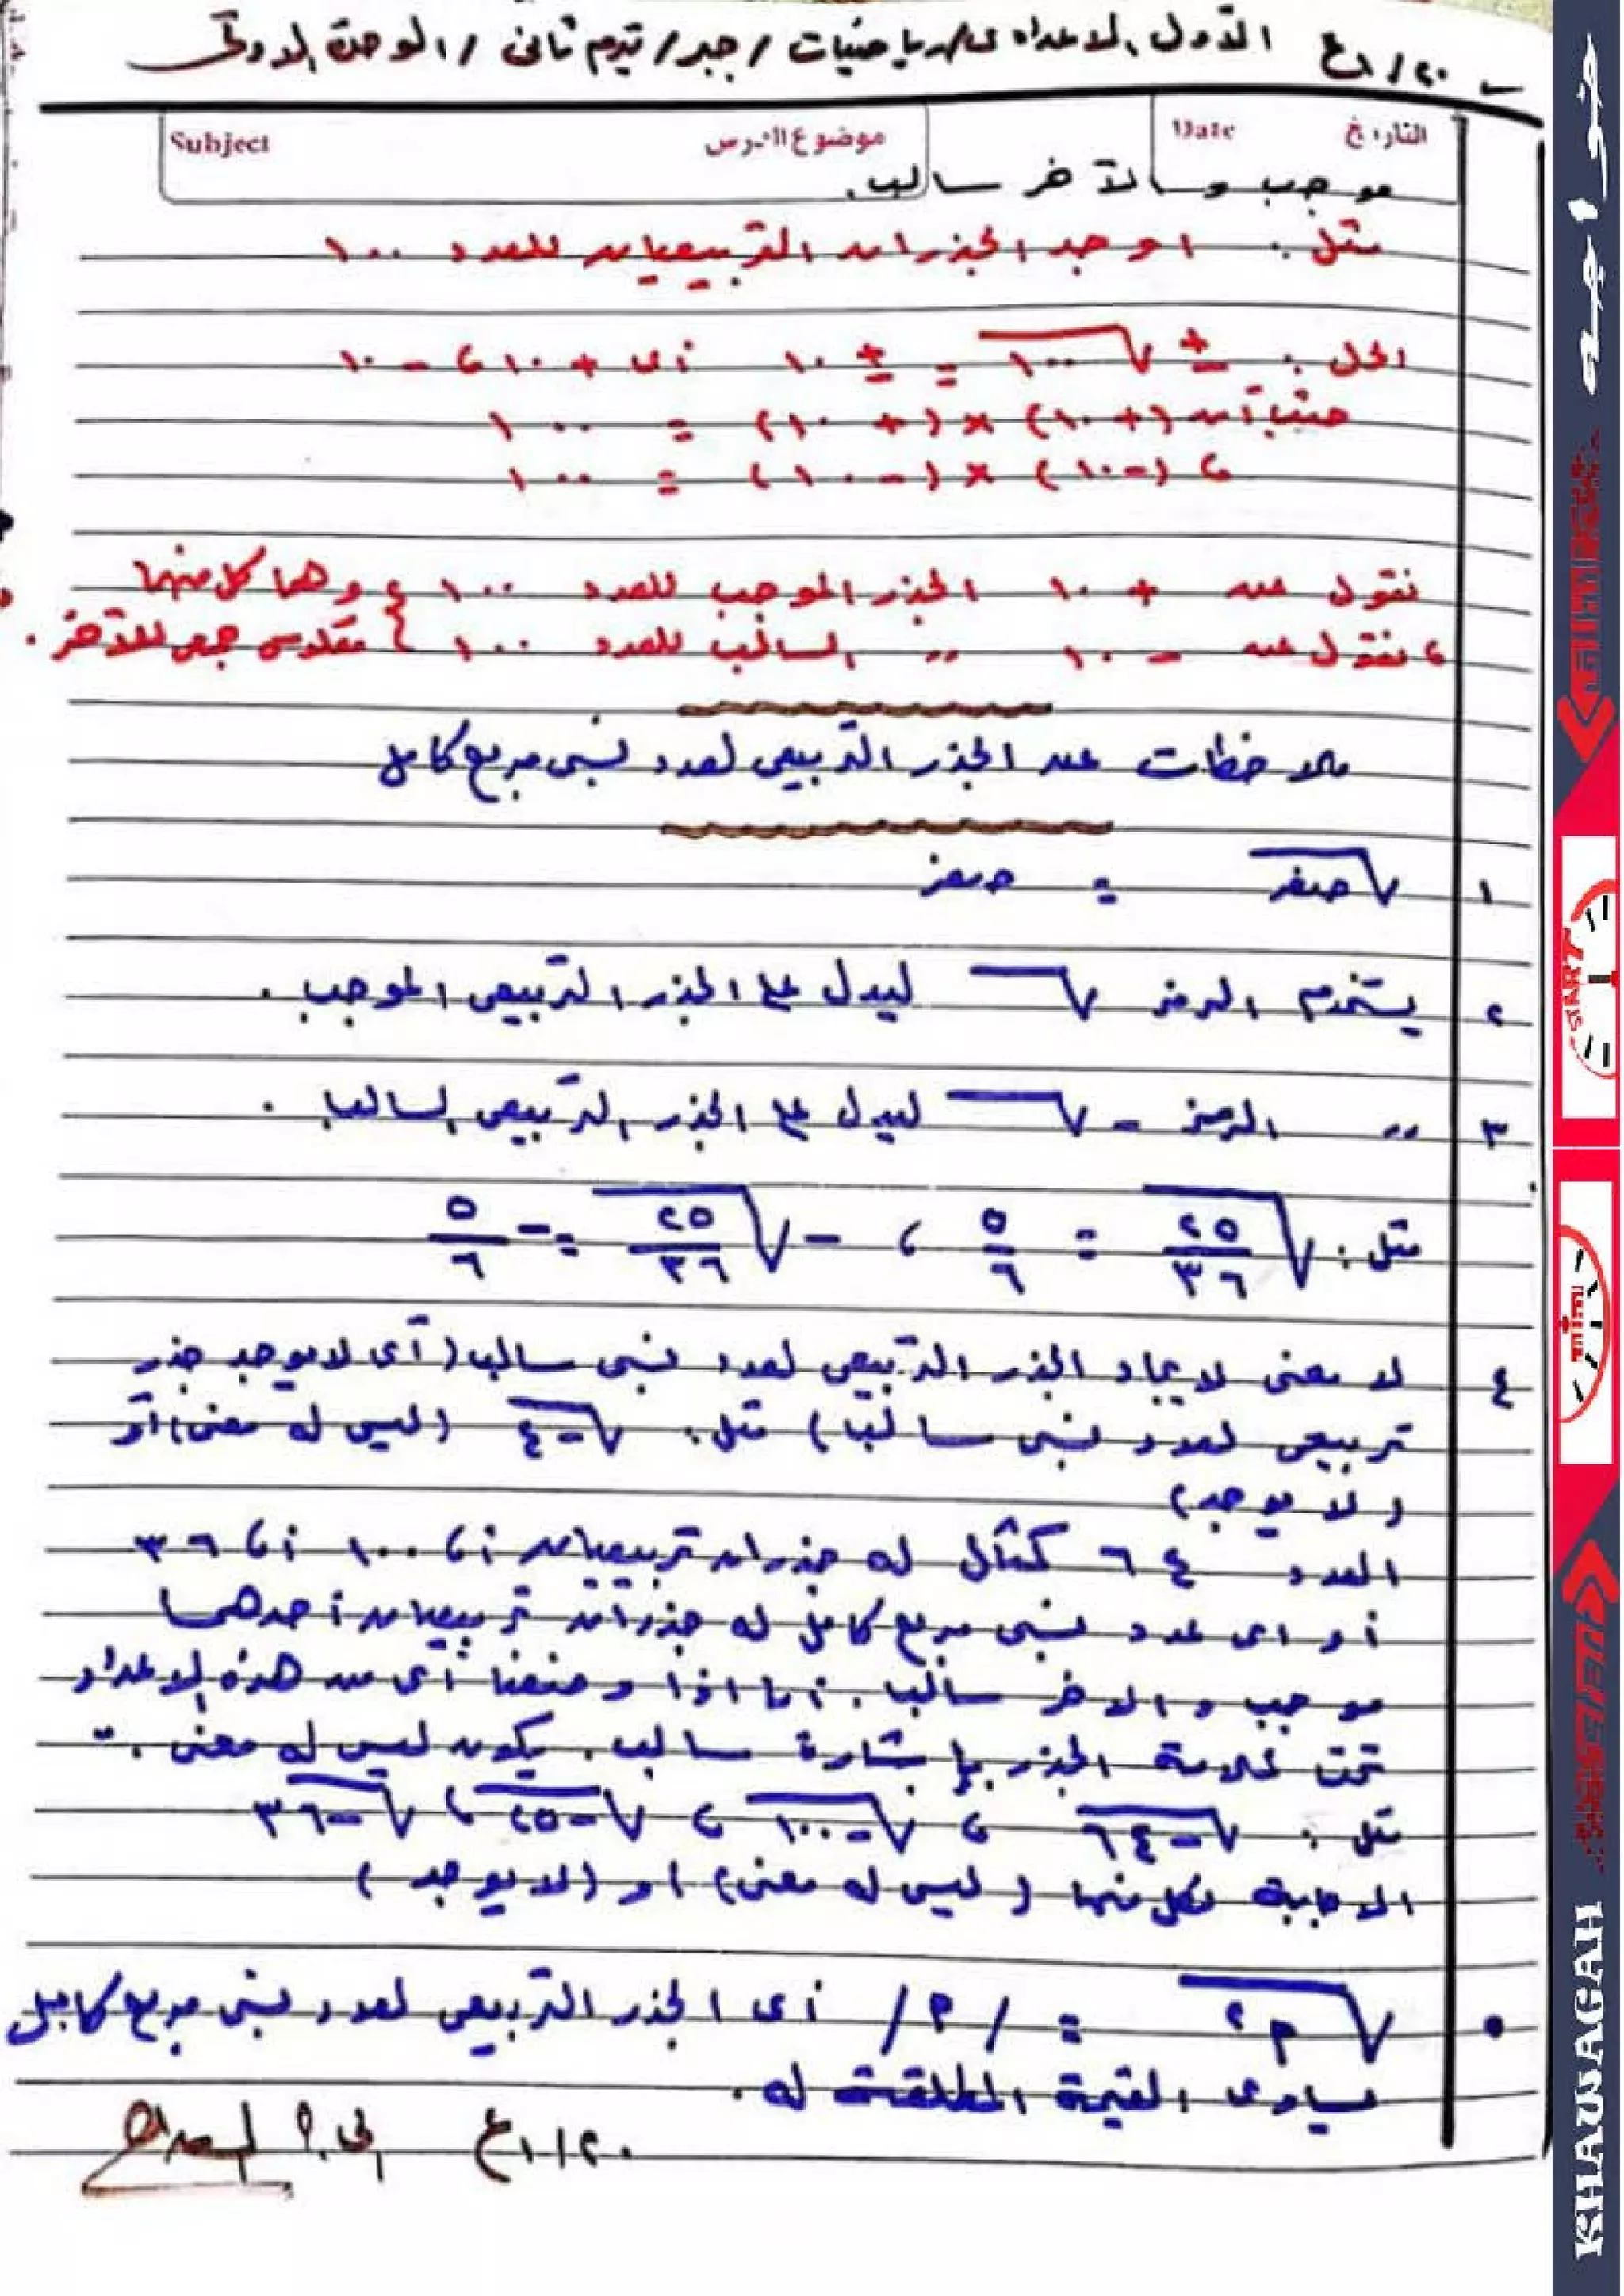 ٢٠/١ع الأول الاعدادى/رياضيات/جبر/تيرم ثانى/الوحدة الاولى
Subject موضوع الدرس Date التاريخ
موجب والآخر سالب.
مثل: اوجد الجذران التربيعيان للعدد ١٠٠
الحل: ± √١٠٠ = ± ١٠ أى + ١٠ ، - ١٠
حيث أن (+ ١٠) × (+ ١٠) = ١٠٠
، (- ١٠) × (- ١٠) = ١٠٠
نقول عن + ١٠ الجذر الموجب للعدد ١٠٠ } وهما كل منهما
، نقول عن - ١٠ ,, السالب للعدد ١٠٠ } معكوس جمعى للآخر.
ملاحظات عن الجذر التربيعى لعدد نسبى مربع كامل
١ √صفر = صفر
٢ يستخدم الرمز √ ليدل على الجذر التربيعى الموجب.
٣ ,, الرمز - √ ليدل على الجذر التربيعى السالب.
مثل: √٢٥/٣٦ = ٥/٦ ، - √٢٥/٣٦ = - ٥/٦
٤ لا معنى لايجاد الجذر التربيعى لعدد نسبى سالب (أى لا يوجد جذر
تربيعى لعدد نسبى سالب) مثل: √-٤ (ليس له معنى) أو
(لا يوجد)
العدد ٦٤ كمثال له جذران تربيعيان أ، ١٠٠ أ، ٣٦
أو اى عدد نسبى مربع كامل له جذران تربيعيان أحدهما
موجب والاخر سالب. أما اذا وضعنا أى من هذه الاعداد
تحت علامة الجذر بإشارة سالب. يكون ليس له معنى.
مثل: √-٦٤ ، √-١٠٠ ، √-٢٥ ، √-٣٦
الاجابة لكل منها (ليس له معنى) او (لا يوجد)
٥ √م٢ = /م/ أى الجذر التربيعى لعدد نسبى مربع كامل
يساوى القيمة المطلقة له.
٢٠/١ع
خواجه
START
TIME
KHAWAGAH